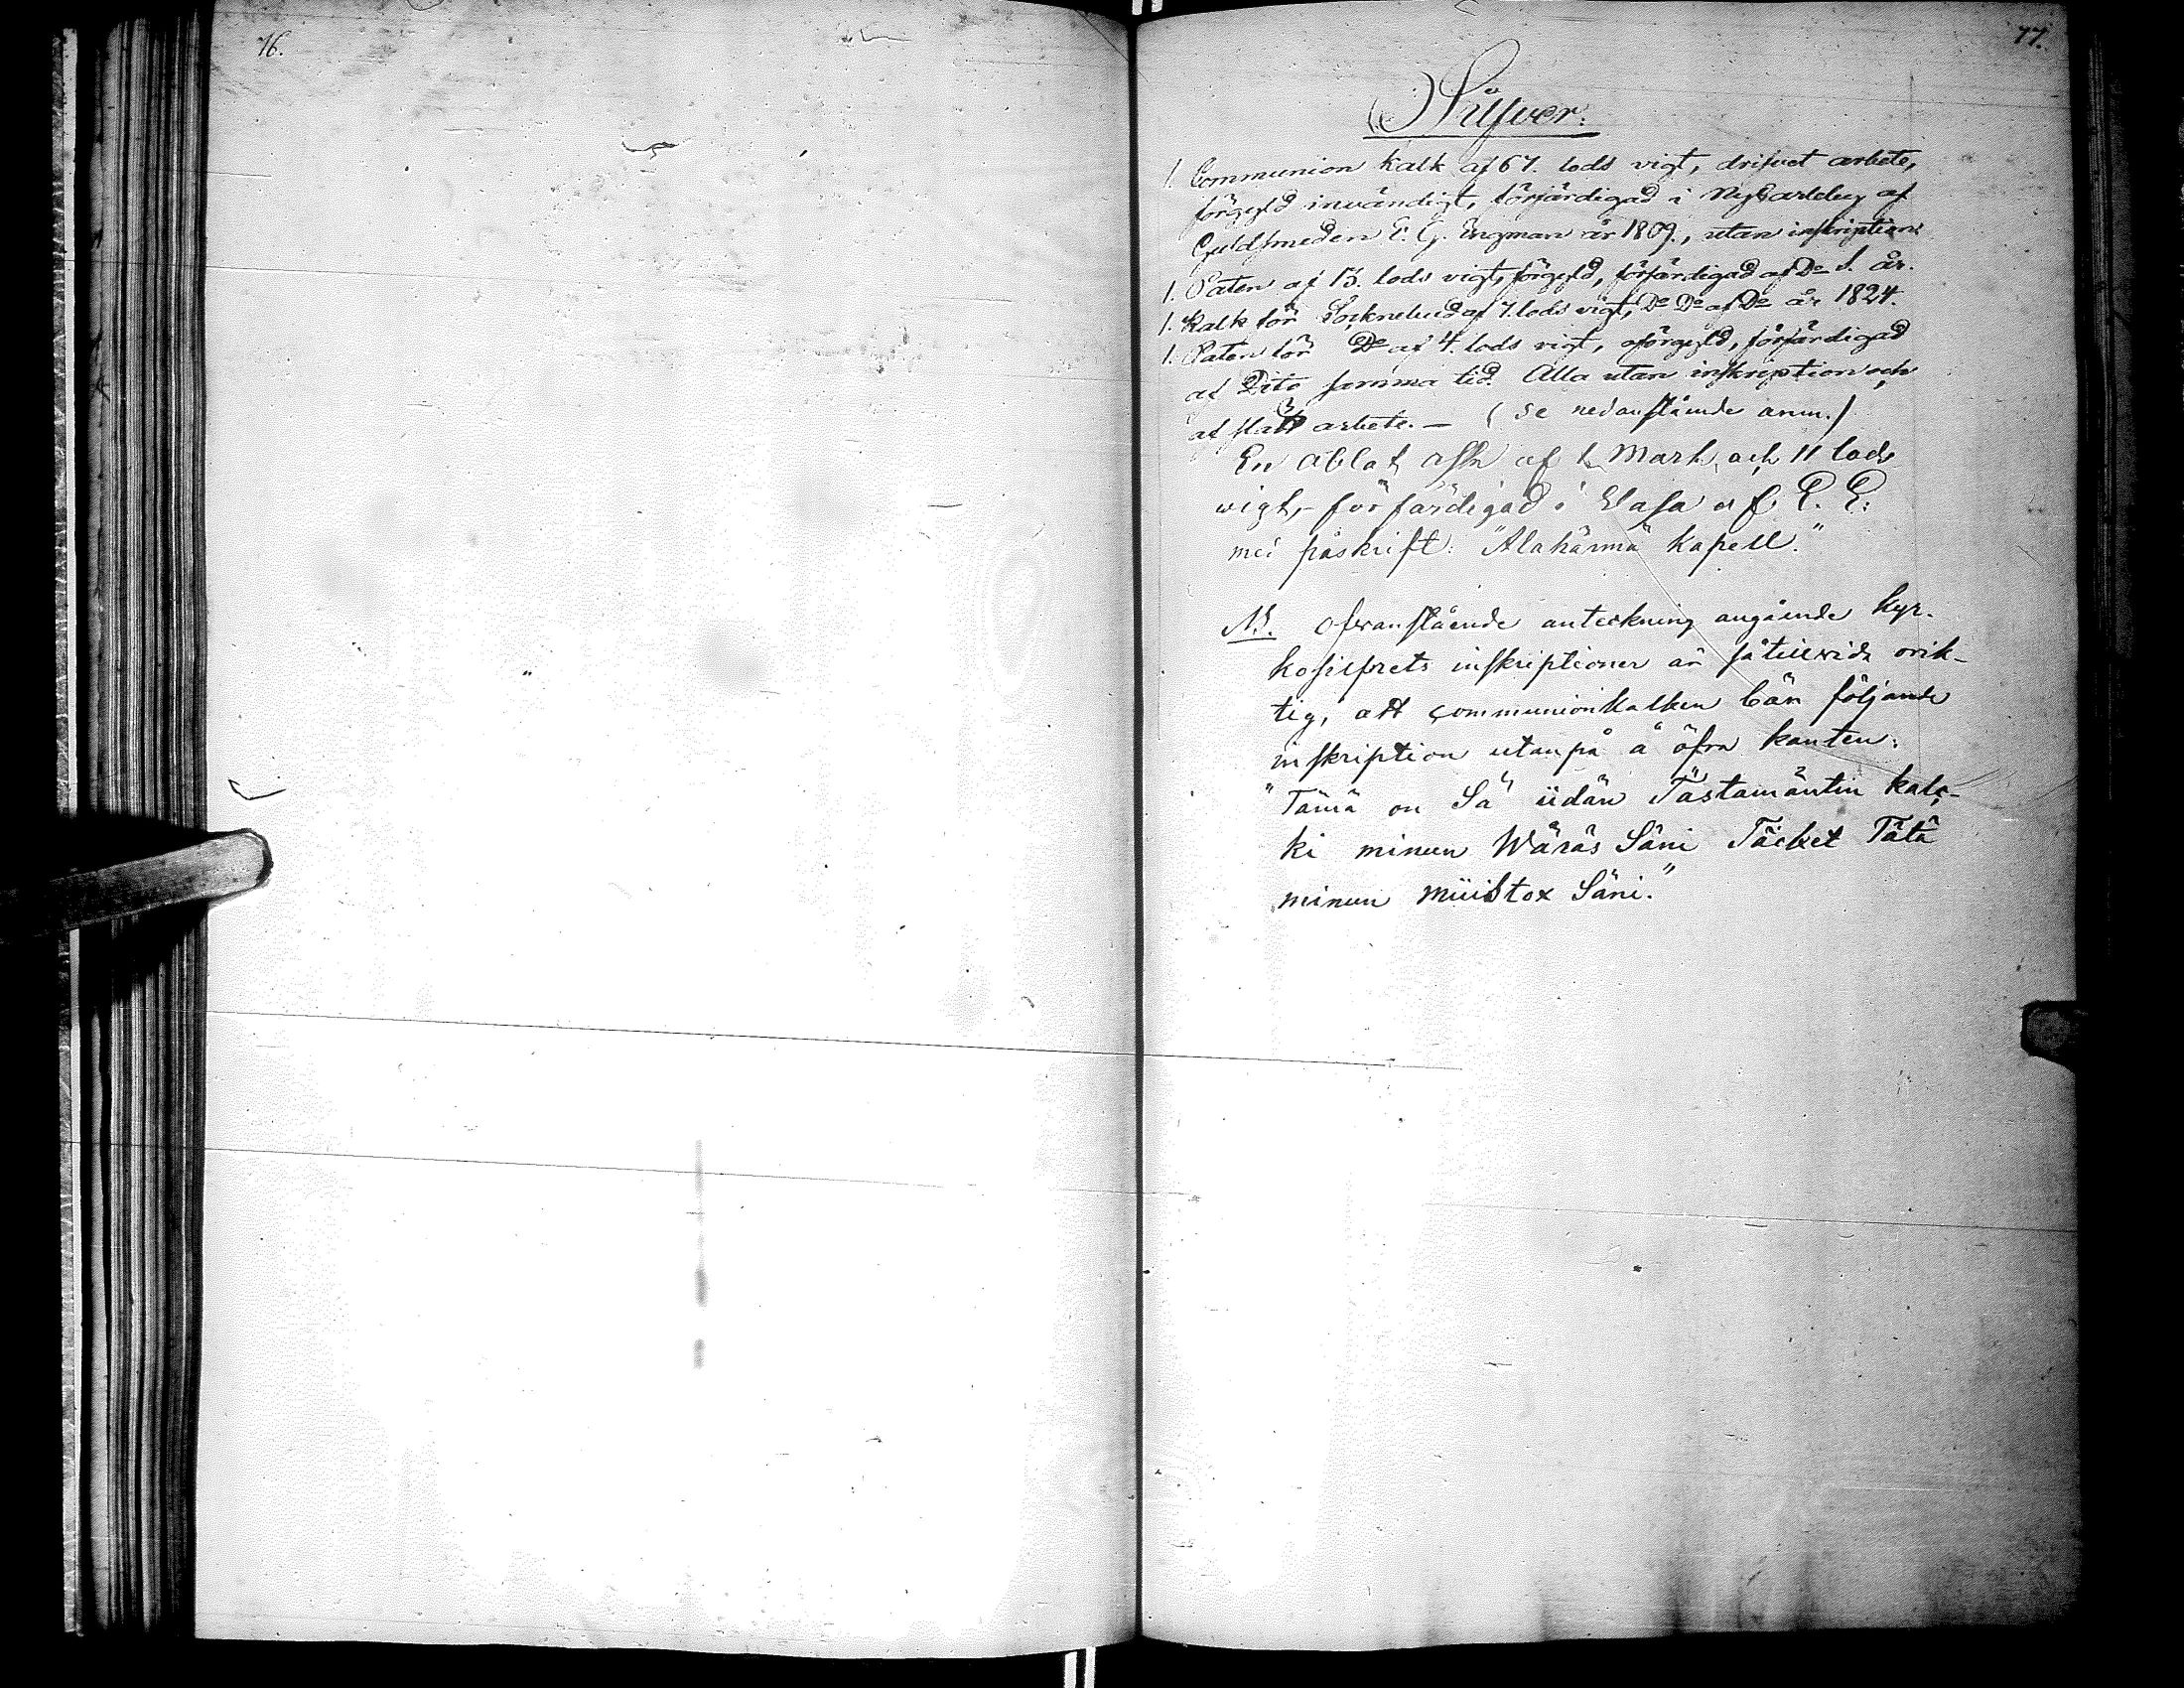 76.
77.
Silfwer.
1. Communion Kalk af 67. lods vigt, drifvet arbete,
förgyld invändigt, förfärdigad i NyCarleby af
Guldsmeden E. G. Engman år 1809., utan inskription
1. Paten af 13. lods vigt, förgyld, förfärdigad af Do S. år.
1. Kalk för Socknebud af 7. lods vigt, Do Do af Do år 1824.
1. Paten för Do af 4. lods vigt, oförgyld, förfärdigad
af Dito samma tid. Alla utan inskription och
af slätt arbete. — (se nedanstående anm.)
En ablat ask af 1 Mark och 11 lods
wigt, förfärdigad i Wasa af E. E.
med påskrift: "Alahärmä Kapell."
NB. Ofvanstående anteckning angående kyr-
kosilfrets inskriptioner är såtillvida orik-
tig, att communionkalken bär följande
inskription utanpå å öfra kanten:
"Tämä on Sä üdän Tästamäntin kalc-
ki minun Wäräs Säni Täcket Tätä
minun müistox Säni."